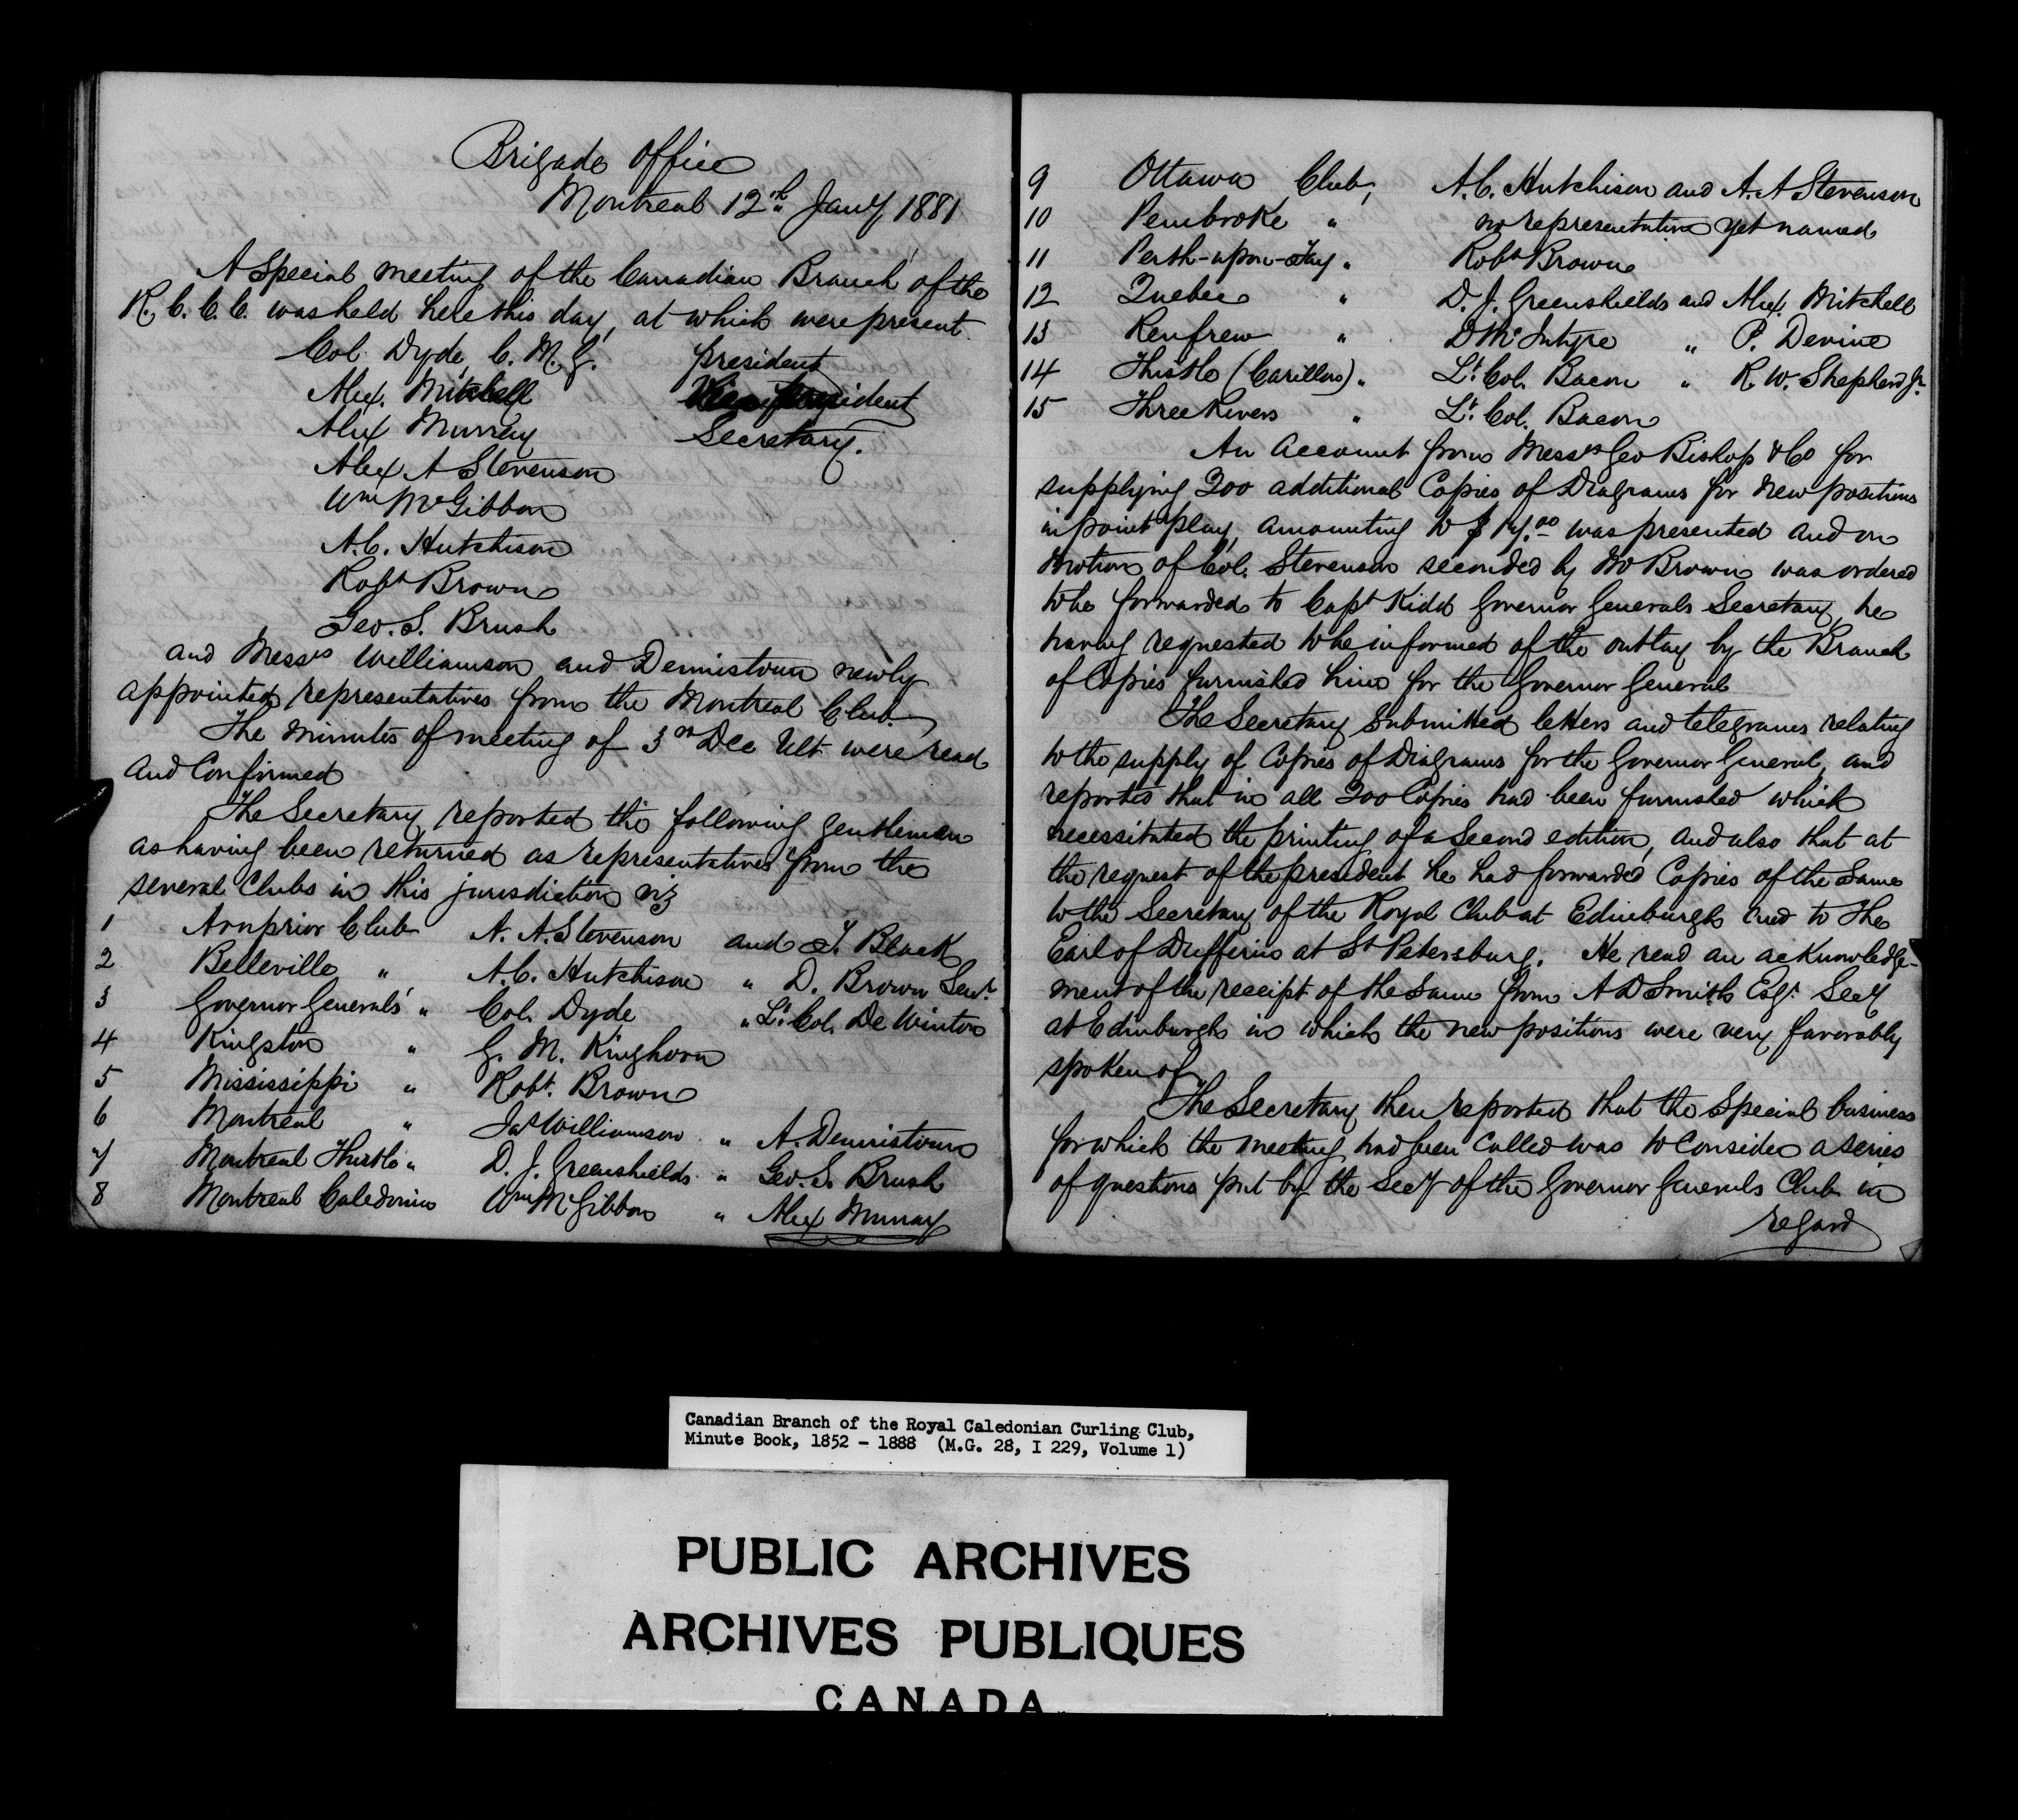 Brigade Office
Montreal 12th Jany 1881
A Special meeting of the Canadian Branch of the
R. C. C. C. was held here this day, at which were present
Col. Dyde, C. M. G. president
Alex. Mitchell Vice president
Alex Murray Secretary.
Alex. A Stevenson
Wm McGibbon
A. C. Hutchison
Robt Brown
Geo. S. Brush
and Messrs Williamson and Dennistoun newly
appointed representatives from the Montreal Club.
The minutes of meeting of 3rd Dec Ult were read
and Confirmed
The Secretary reported the following gentlemen
as having been returned as representatives from the
several Clubs in this jurisdiction viz
1 Arnprior Club A. A. Stevenson and T. Black
2 Belleville " A. C. Hutchison " D. Brown Senr
3 Governor Generals' " Col. Dyde " Lt. Col. De Winton
4 Kingston " G. M. Kinghorn
5 Mississippi " Robt. Brown
6 Montreal " Jas Williamson " A. Dennistoun
7 Montreal Thistle " D. J. Greenshields " Geo. S. Brush
8 Montreal Caledonia Wm McGibbon " Alex Murray
9 Ottawa Club, A. C. Hutchison and A. A Stevenson
10 Pembroke " no representative yet named
11 Perth-upon-Tay " Robt Brown
12 Quebec " D. J. Greenshields and Alex. Mitchell
13 Renfrew " D McIntyre " P. Devine
14 Thistle (Carillon) " Lt. Col. Bacon " R. W. Shepherd Jr.
15 Three Rivers " Lt. Col. Bacon
An Account from Messrs Geo Bishop & Co for
supplying 200 additional Copies of Diagrams for new positions
in point play, amounting to $ 17.00 was presented and on
motion of Col. Stevenson seconded by Mr Brown was ordered
to be forwarded to Capt Kidd Governor Generals Secretary, he
having requested to be informed of the outlay by the Branch
of Copies furnished him for the Governor General
The Secretary submitted letters and telegrams relating
to the supply of Copies of Diagrams for the Governor General, and
reported that in all 200 Copies had been furnished which
necessitated the printing of a Second edition, and also that at
the request of the president he had forwarded Copies of the Same
to the Secretary of the Royal Club at Edinburgh and to the
Earl of Dufferin at St Petersburg. He read an acknowledge-
ment of the receipt of the Same from A D Smith Esqr. Secy
at Edinburgh in which the new positions were very favorably
spoken of
The Secretary then reported that the Special business
for which the meeting had been called was to Consider a series
of questions put by the Secy of the Governor Generals Club in
regard
Canadian Branch of the Royal Caledonian Curling Club,
Minute Book, 1852 - 1888 (M.G. 28, I 229, Volume 1)
PUBLIC ARCHIVES
ARCHIVES PUBLIQUES
CANADA